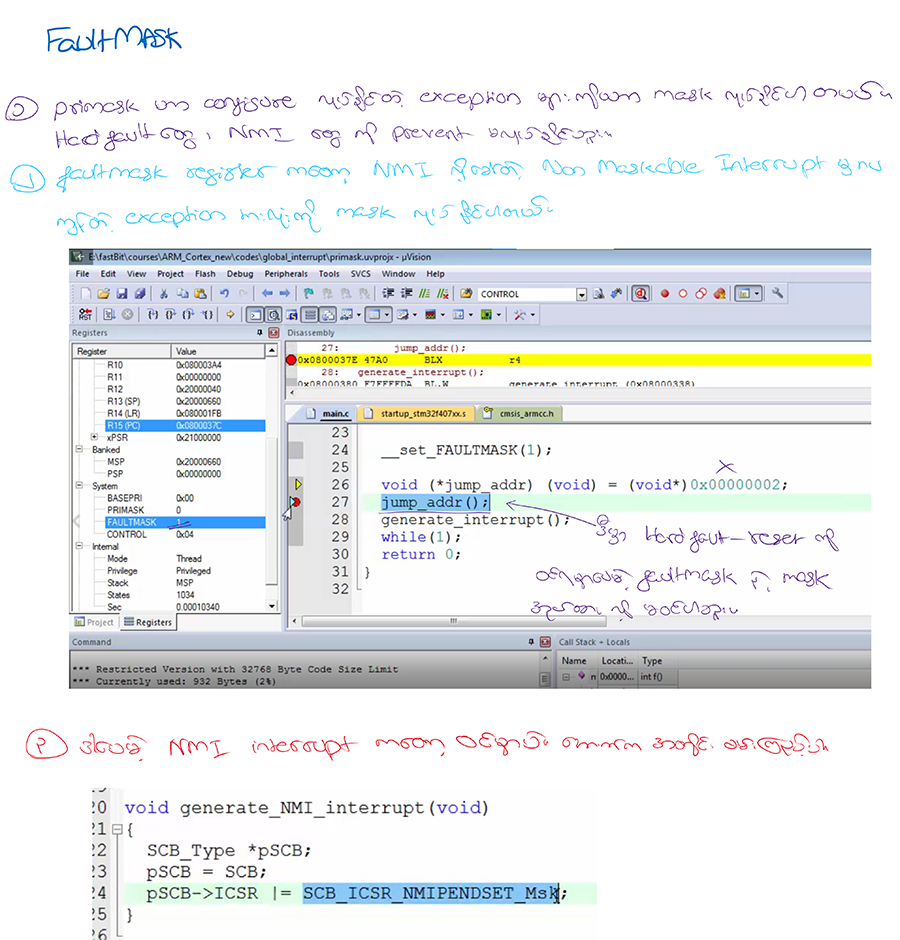 FaultMASK
၁ primask ဟာ configure လုပ်နိုင်တဲ့ exception များကိုသာ mask လုပ်နိုင်ပါတယ်။
Hard fault တွေ၊ NMI တွေ ကို prevent မလုပ်နိုင်ပါဘူး။
၂ faultmask register ကတော့ NMI ဆိုတဲ့ Non Maskable Interrupt မှလွဲ
ကျန်တဲ့ exception အားလုံးကို mask လုပ်နိုင်ပါတယ်။
E:\fastBit\courses\ARM_Cortex_new\codes\global_interrupt\primask.uvprojx - µVision
File Edit View Project Flash Debug Peripherals Tools SVCS Window Help
CONTROL
RST
Registers
Register Value
R10 0x080003A4
R11 0x00000000
R12 0x20000040
R13 (SP) 0x20000660
R14 (LR) 0x080001FB
R15 (PC) 0x0800037C
xPSR 0x21000000
Banked
MSP 0x20000660
PSP 0x00000000
System
BASEPRI 0x00
PRIMASK 0
FAULTMASK 1
CONTROL 0x04
Internal
Mode Thread
Privilege Privileged
Stack MSP
States 1034
Sec 0.00010340
Project Registers
Disassembly
27: jump_addr();
0x0800037E 47A0 BLX r4
28: generate_interrupt();
0x08000380 F7FFFFDA BL.W generate_interrupt (0x08000338)
main.c startup_stm32f407xx.s cmsis_armcc.h
23
24 __set_FAULTMASK(1);
25
26 void (*jump_addr) (void) = (void*)0x00000002;
27 jump_addr();
28 generate_interrupt();
29 while(1);
30 return 0;
31 }
32
ဒီမှာ Hard faut-reset ကို
ဝင်ရမှာပေမဲ့ faultmask နဲ့ mask
လုပ်ထားလို့ မဝင်ပါဘူး
Command
*** Restricted Version with 32768 Byte Code Size Limit
*** Currently used: 932 Bytes (2%)
Call Stack + Locals
Name Locati... Type
n 0x0000... int f()
၃ ဒါပေမဲ့ NMI interrupt ကတော့ ဝင်မှာပါ။ အောက်က အတိုင်း စမ်းကြည့်ပါ။
20 void generate_NMI_interrupt(void)
21 {
22 SCB_Type *pSCB;
23 pSCB = SCB;
24 pSCB->ICSR |= SCB_ICSR_NMIPENDSET_Msk;
25 }
26